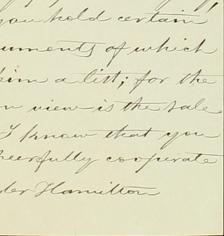 you hold certain
uments of which
him a list; for the
n view is the sale
I know that you
heerfully cooperate
der Hamilton